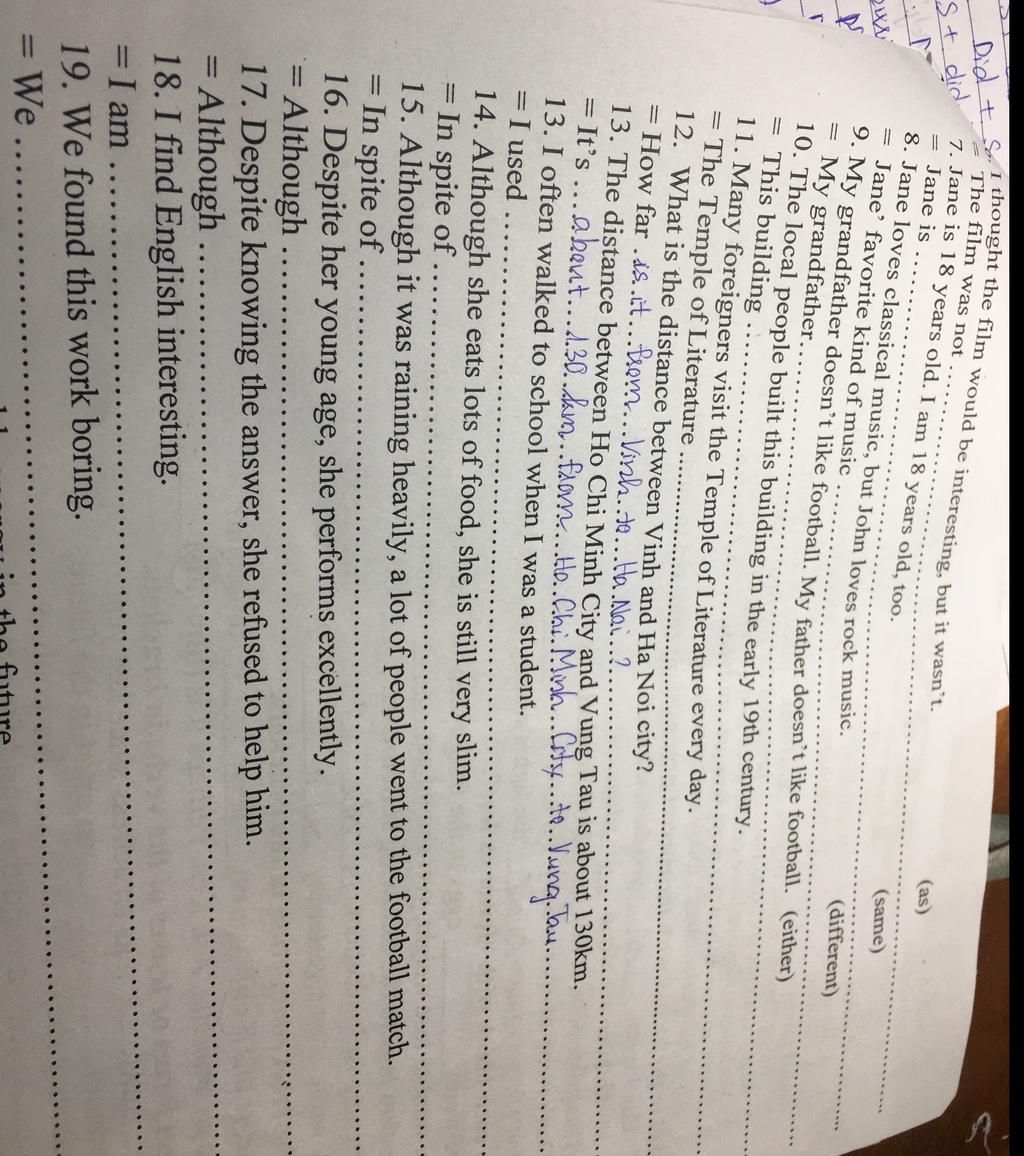 Did + S
S + did
I thought the film would be interesting, but it wasn't.
= The film was not ..........
7. Jane is 18 years old. I am 18 years old, too. (as)
= Jane is ..........
8. Jane loves classical music, but John loves rock music. (same)
= Jane' favorite kind of music ..........
9. My grandfather doesn't like football. My father doesn't like football. (different) (either)
= My grandfather ..........
10. The local people built this building in the early 19th century.
= This building ..........
11. Many foreigners visit the Temple of Literature every day.
= The Temple of Literature ..........
12. What is the distance between Vinh and Ha Noi city?
= How far is it from Vinh to Ha Noi ?
13. The distance between Ho Chi Minh City and Vung Tau is about 130km.
= It's about 130 km from Ho Chi Minh City to Vung Tau
13. I often walked to school when I was a student.
= I used ..........
14. Although she eats lots of food, she is still very slim.
= In spite of ..........
15. Although it was raining heavily, a lot of people went to the football match.
= In spite of ..........
16. Despite her young age, she performs excellently.
= Although ..........
17. Despite knowing the answer, she refused to help him.
= Although ..........
18. I find English interesting.
= I am ..........
19. We found this work boring.
= We ..........
in the future